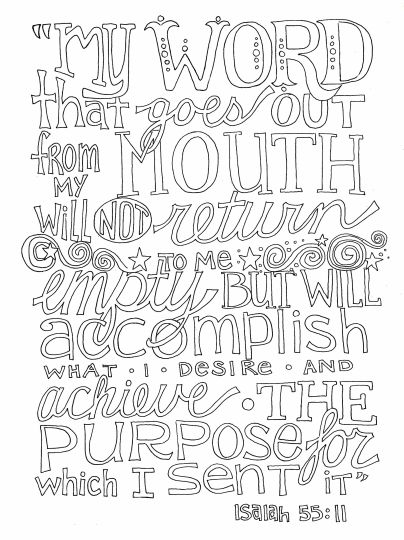 "MY WORD
that goes OUT
from MY MOUTH
will NOT return
TO ME
empty BUT WILL
accomplish
WHAT • I • DESIRE • AND
achieve • THE
PURPOSE for
which I SENT it"
Isaiah 55:11